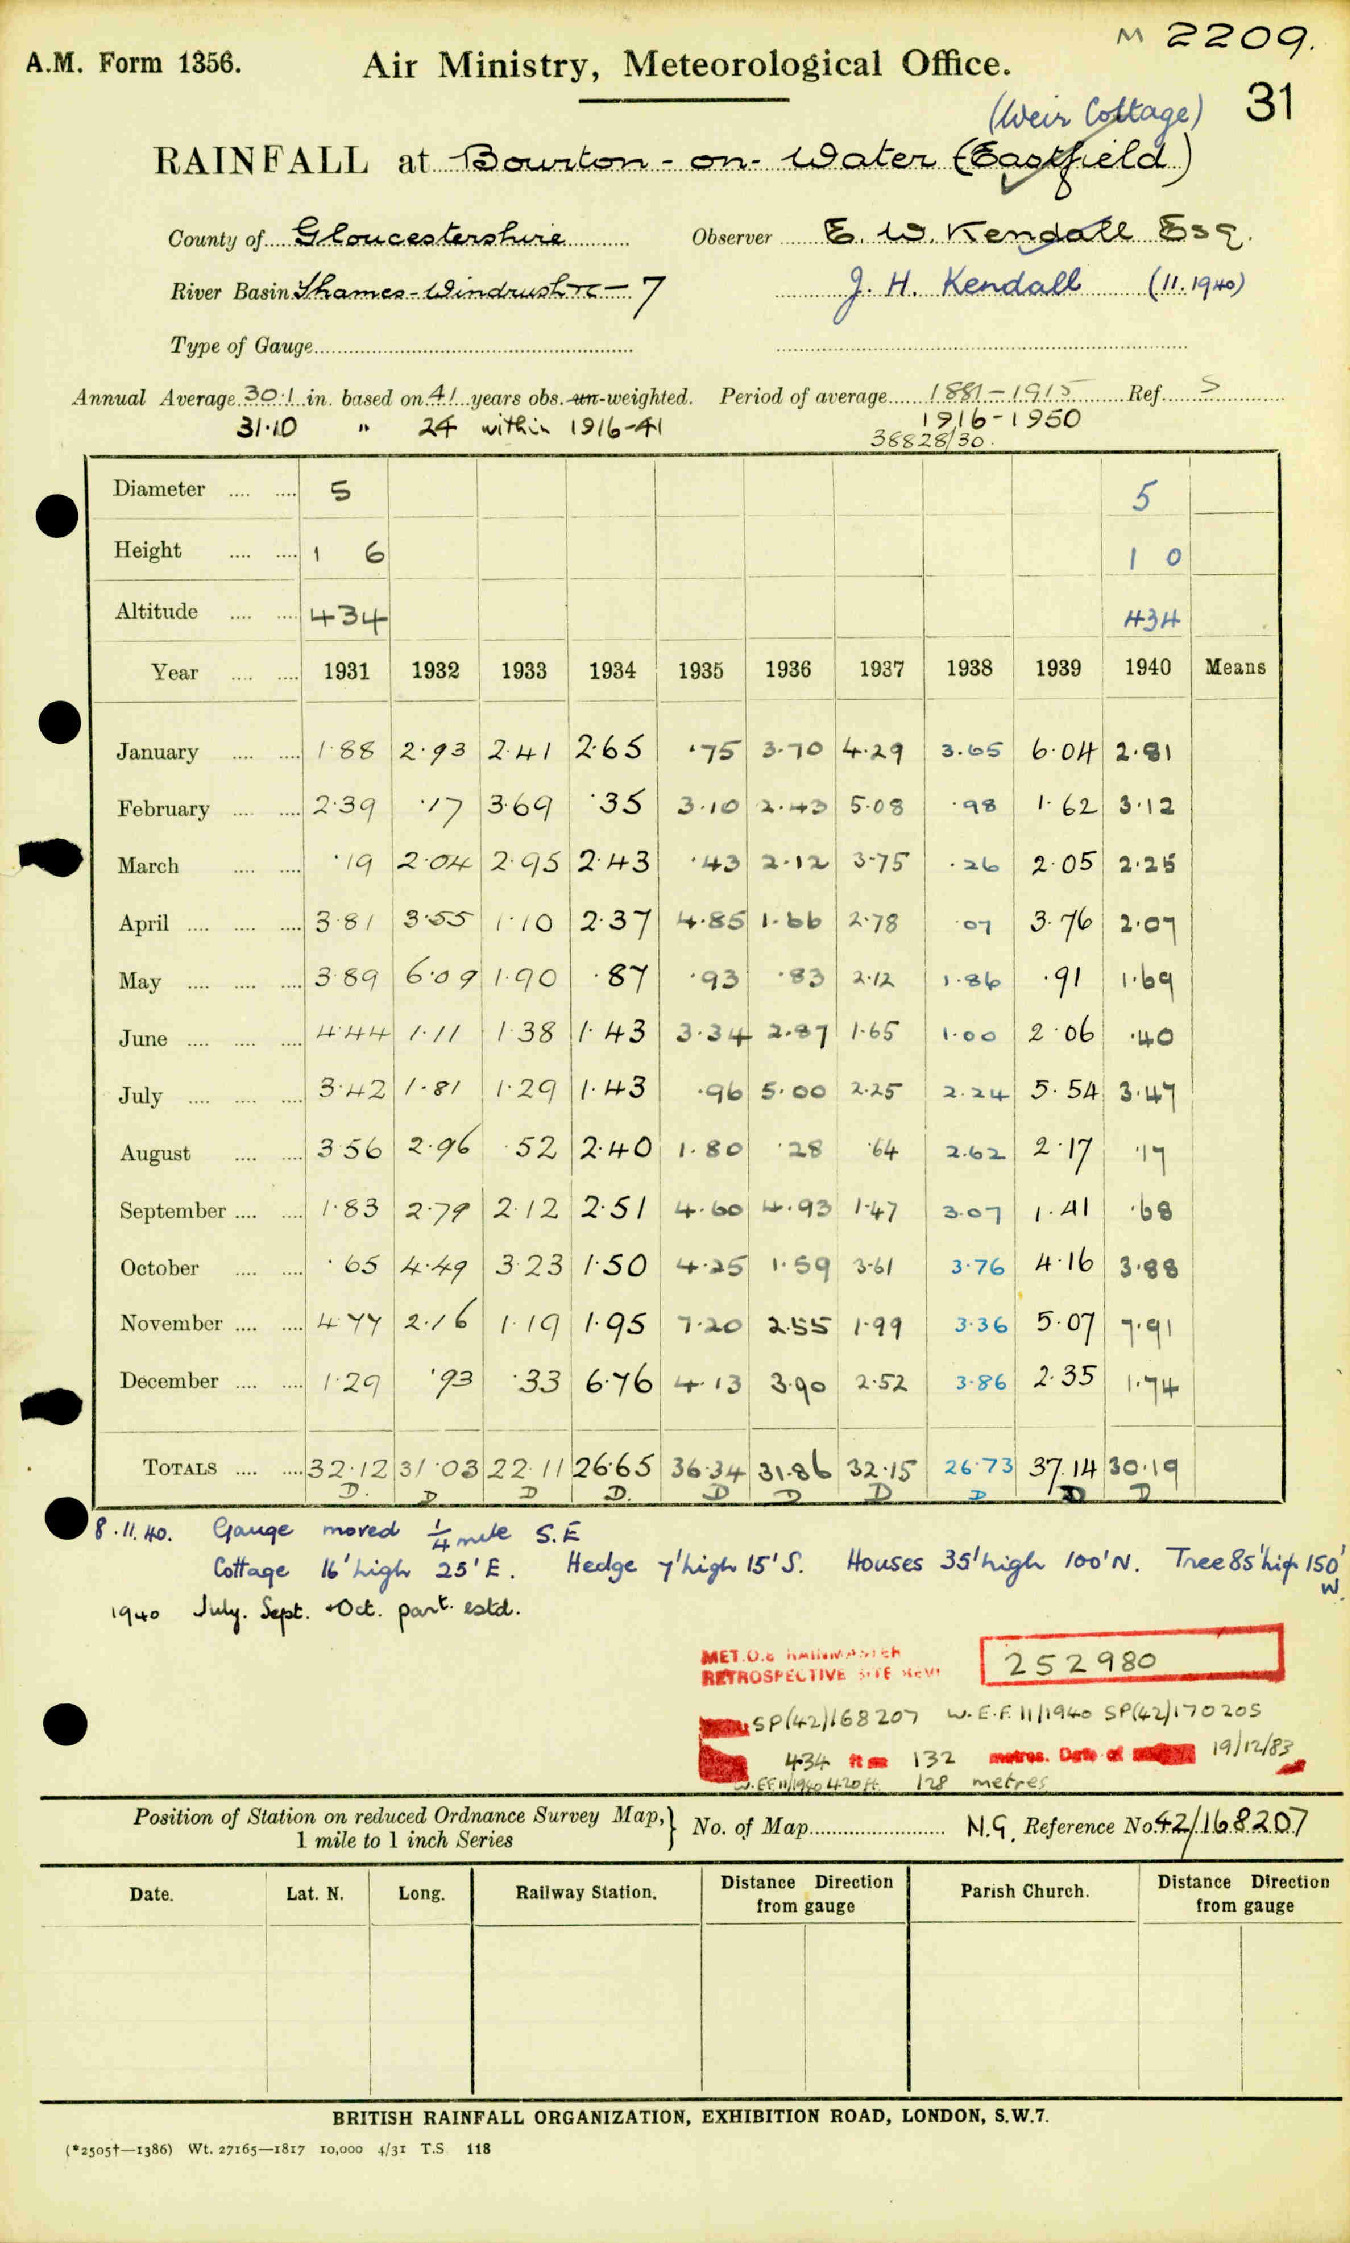 M 2209.
A.M. Form 1356. Air Ministry, Meteorological Office.
31
(Weir Cottage)
RAINFALL at Bourton-on-Water (Eastfield)
County of Gloucestershire Observer E. W. Kendall Esq.
River Basin Thames-Windrush 7 J. H. Kendall (11.1940)
Type of Gauge
Annual Average 30.1 in. based on 41 years obs. un-weighted. Period of average 1881-1915 Ref. S
31.10 " 24 within 1916-41 1916-1950
36828/30.
Diameter 5 5
Height 1 6 1 0
Altitude 434 434
Year 1931 1932 1933 1934 1935 1936 1937 1938 1939 1940 Means
January 1.88 2.93 2.41 2.65 .75 3.70 4.29 3.65 6.04 2.81
February 2.39 .17 3.69 .35 3.10 2.43 5.08 .98 1.62 3.12
March .19 2.04 2.95 2.43 .43 2.12 3.75 .26 2.05 2.25
April 3.81 3.55 1.10 2.37 4.85 1.66 2.78 .07 3.76 2.07
May 3.89 6.09 1.90 .87 .93 .83 2.12 1.86 .91 1.69
June 4.44 1.11 1.38 1.43 3.34 2.87 1.65 1.00 2.06 .40
July 3.42 1.81 1.29 1.43 .96 5.00 2.25 2.24 5.54 3.47
August 3.56 2.96 .52 2.40 1.80 .28 .64 2.62 2.17 .17
September 1.83 2.79 2.12 2.51 4.60 4.93 1.47 3.07 1.41 .68
October .65 4.49 3.23 1.50 4.25 1.59 3.61 3.76 4.16 3.88
November 4.77 2.16 1.19 1.95 7.20 2.55 1.99 3.36 5.07 7.91
December 1.29 .93 .33 6.76 4.13 3.90 2.52 3.86 2.35 1.74
TOTALS 32.12 31.03 22.11 26.65 36.34 31.86 32.15 26.73 37.14 30.19
D. D D D. D D D D D D
8.11.40. Gauge moved ¼ mile S.E
Cottage 16' high 25' E. Hedge 7' high 15' S. Houses 35' high 100' N. Tree 85' high 150' W.
1940 July. Sept. + Oct. part. estd.
MET.O.8 RAINMASTER
RETROSPECTIVE SITE 252980
SP(42)168207 W.E.F. 11/1940 SP(42)170205
434 ft 132 metres. Date of 19/12/83
W.E.F 11/1940 420 ft. 128 metres
Position of Station on reduced Ordnance Survey Map,
1 mile to 1 inch Series
No. of Map N.G. Reference No. 42/168207
Date. Lat. N. Long. Railway Station. Distance Direction from gauge Parish Church. Distance Direction from gauge
BRITISH RAINFALL ORGANIZATION, EXHIBITION ROAD, LONDON, S.W.7.
(*2505†—1386) Wt. 27165—1817 10,000 4/31 T.S 118